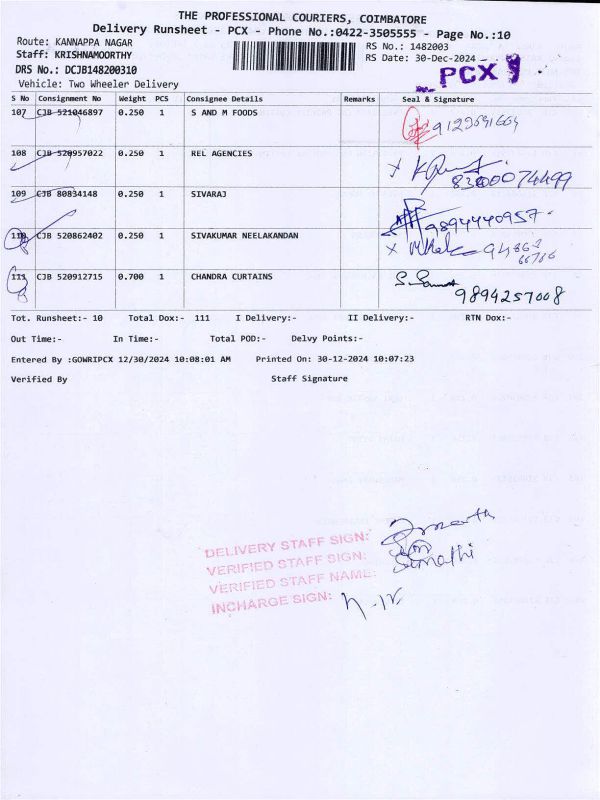 THE PROFESSIONAL COURIERS, COIMBATORE
Delivery Runsheet - PCX - Phone No.:0422-3505555 - Page No.:10
Route: KANNAPPA NAGAR
Staff: KRISHNAMOORTHY
DRS No.: DCJB148200310
Vehicle: Two Wheeler Delivery
RS No.: 1482003
RS Date: 30-Dec-2024
PCX
S No Consignment No Weight PCS Consignee Details Remarks Seal & Signature
107 CJB 521046897 0.250 1 S AND M FOODS
108 CJB 520957022 0.250 1 REL AGENCIES
109 CJB 80834148 0.250 1 SIVARAJ 9894440957
110 CJB 520862402 0.250 1 SIVAKUMAR NEELAKANDAN
111 CJB 520912715 0.700 1 CHANDRA CURTAINS 9894257008
Tot. Runsheet:- 10 Total Dox:- 111 I Delivery:- II Delivery:- RTN Dox:-
Out Time:- In Time:- Total POD:- Delvy Points:-
Entered By :GOWRIPCX 12/30/2024 10:08:01 AM Printed On: 30-12-2024 10:07:23
Verified By Staff Signature
DELIVERY STAFF SIGN:
VERIFIED STAFF SIGN:
VERIFIED STAFF NAME:
INCHARGE SIGN: